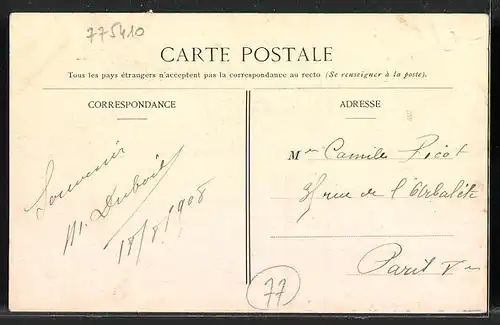 775410
CARTE POSTALE
Tous les pays étrangers n'acceptent pas la correspondance au recto (Se renseigner à la poste).
CORRESPONDANCE
ADRESSE
Souvenir
M. Dubois
18/8/1908
M Camille Picot
rue de l'Arbalète
Paris V
77